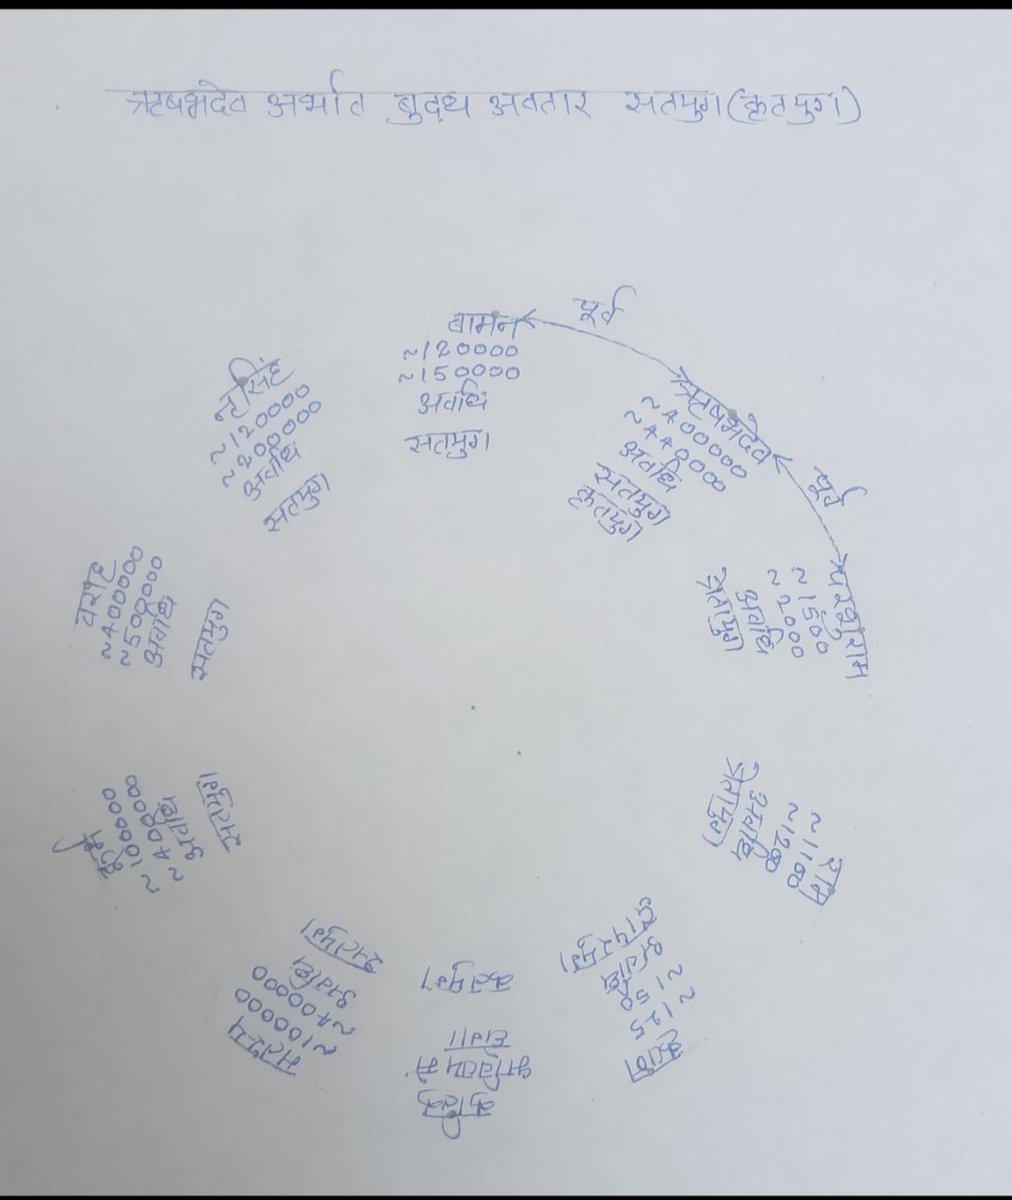 ऋषभदेव अर्थात बुद्ध अवतार सतयुग(कृतयुग)
बामन
~120000
~150000
अवधि
सतयुग
पूर्व
ऋषभदेव
~400000
~440000
अवधि
सतयुग
कृतयुग
पूर्व
परशुराम
~1500
~2000
अवधि
सतयुग
राम
~1100
~1200
अवधि
त्रेतायुग
कृष्ण
~125
~150
अवधि
द्वापरयुग
कल्कि
भविष्य में
होगा
कलयुग
मत्स्य
~100000
~400000
अवधि
सतयुग
कूर्म
~100000
~400000
अवधि
सतयुग
वराह
~400000
~500000
अवधि
सतयुग
नृसिंह
~120000
~200000
अवधि
सतयुग